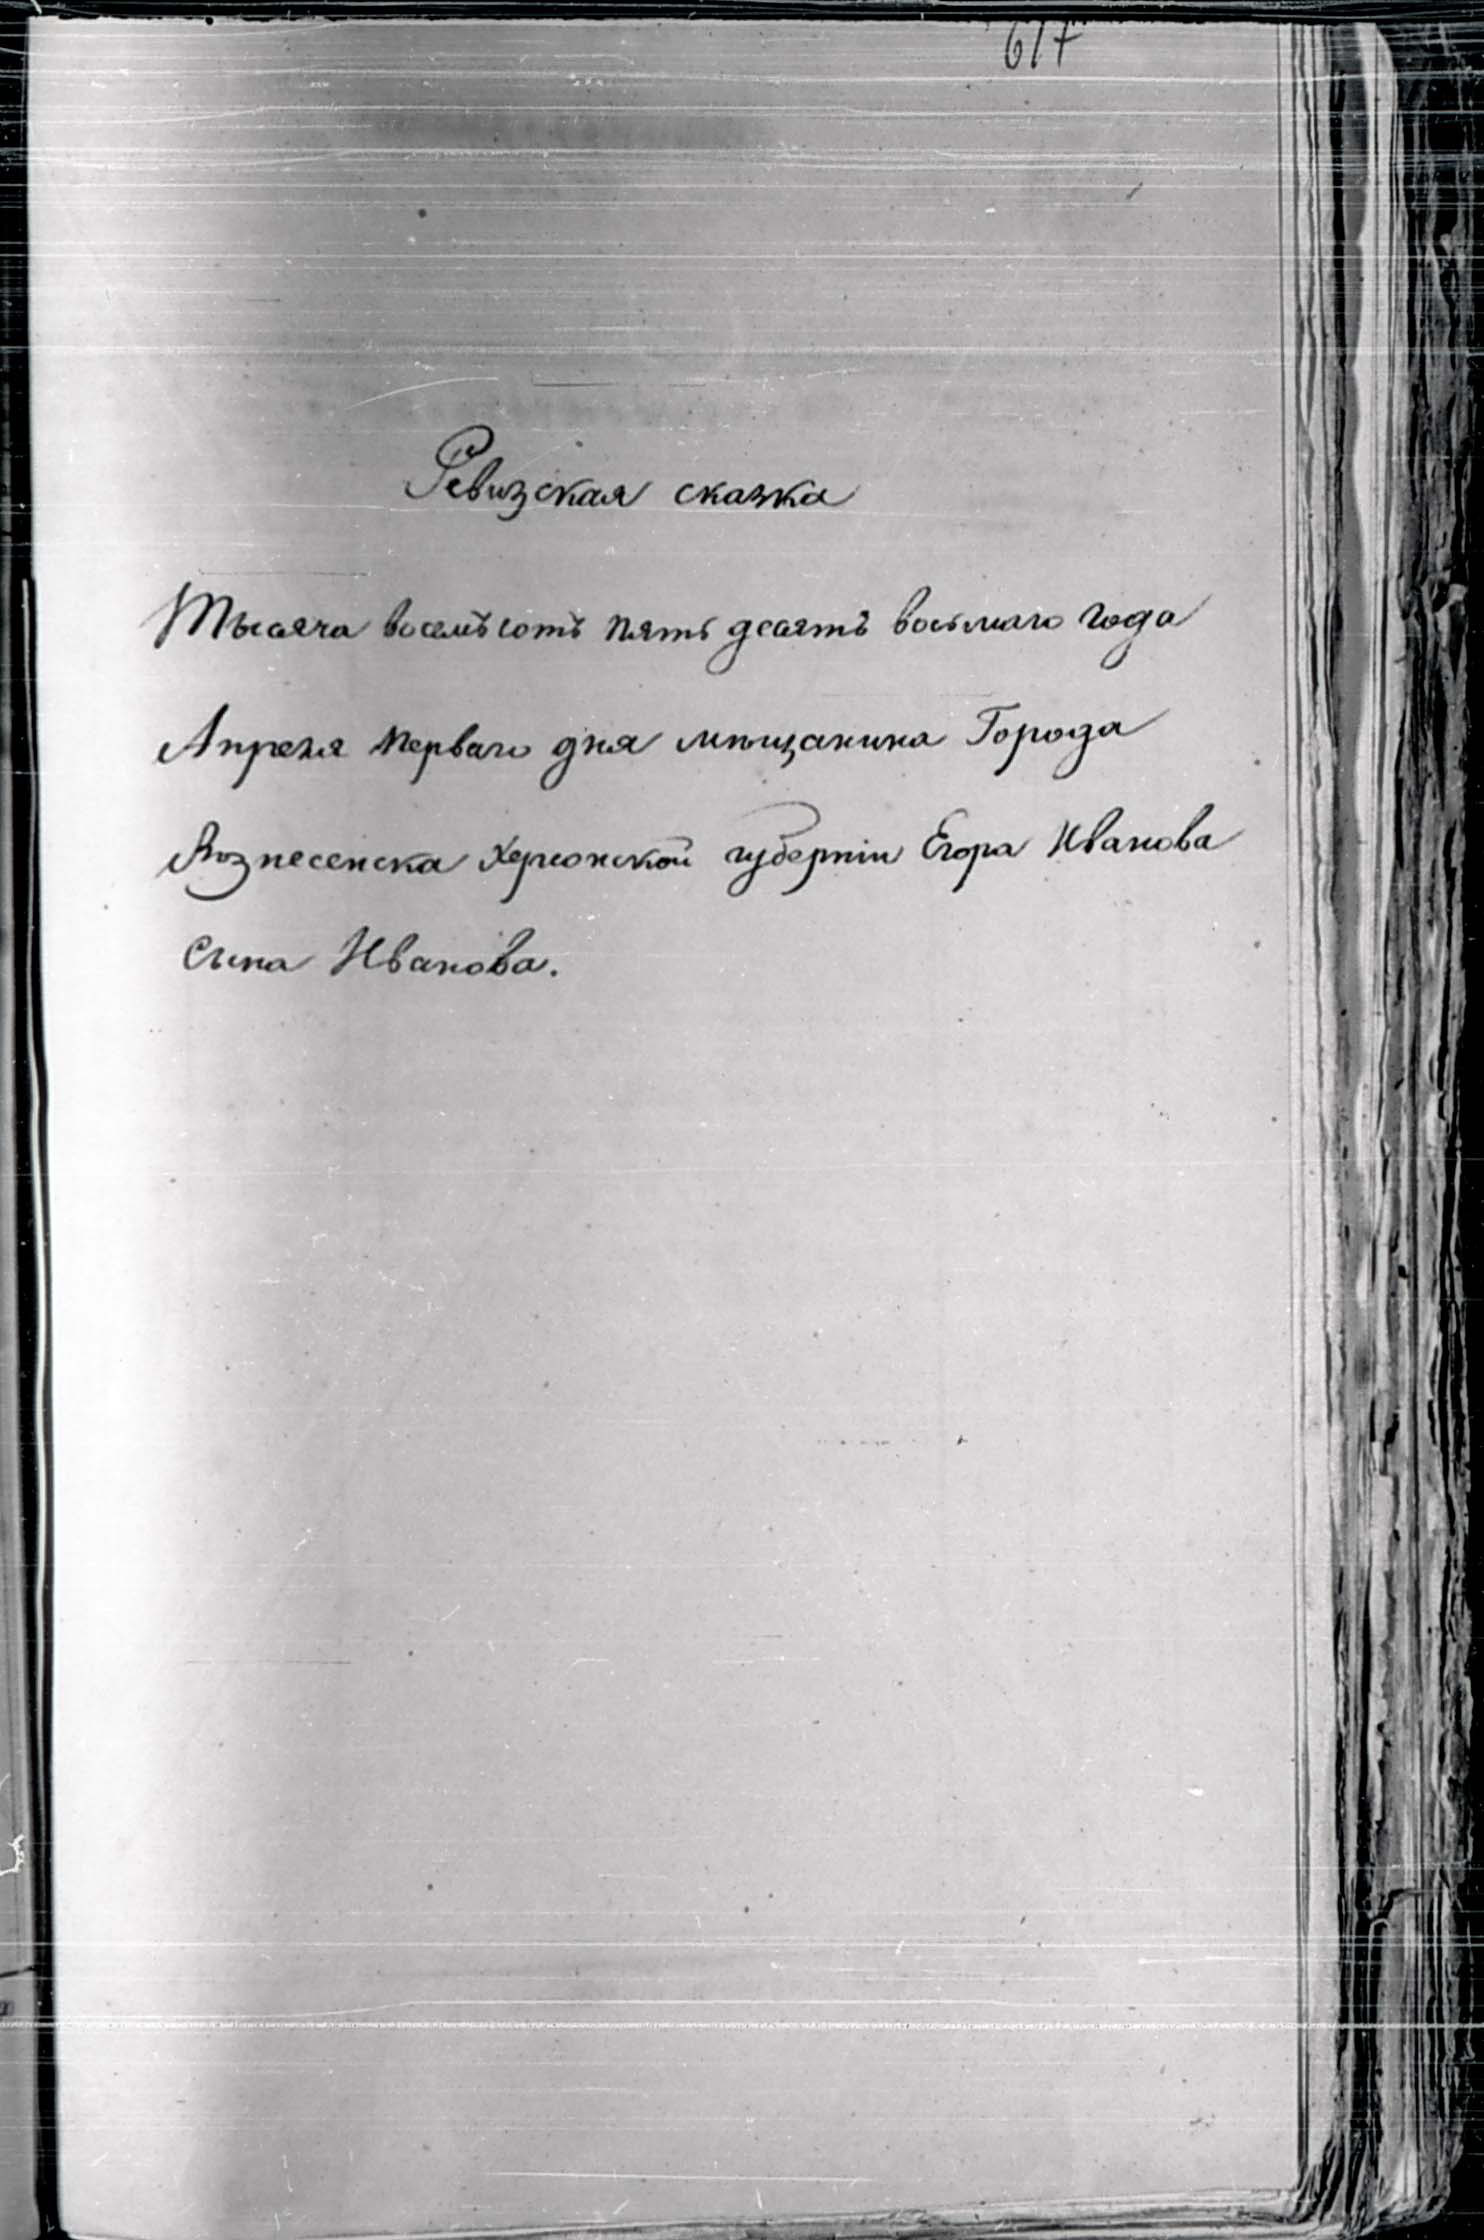 617
Ревизская сказка
Тысяча восемъсотъ пять десятъ восьмаго года
Апреля перваго дня мѣщанина Города
Вознесенска Херсонской губерніи Егора Иванова
Сына Иванова.